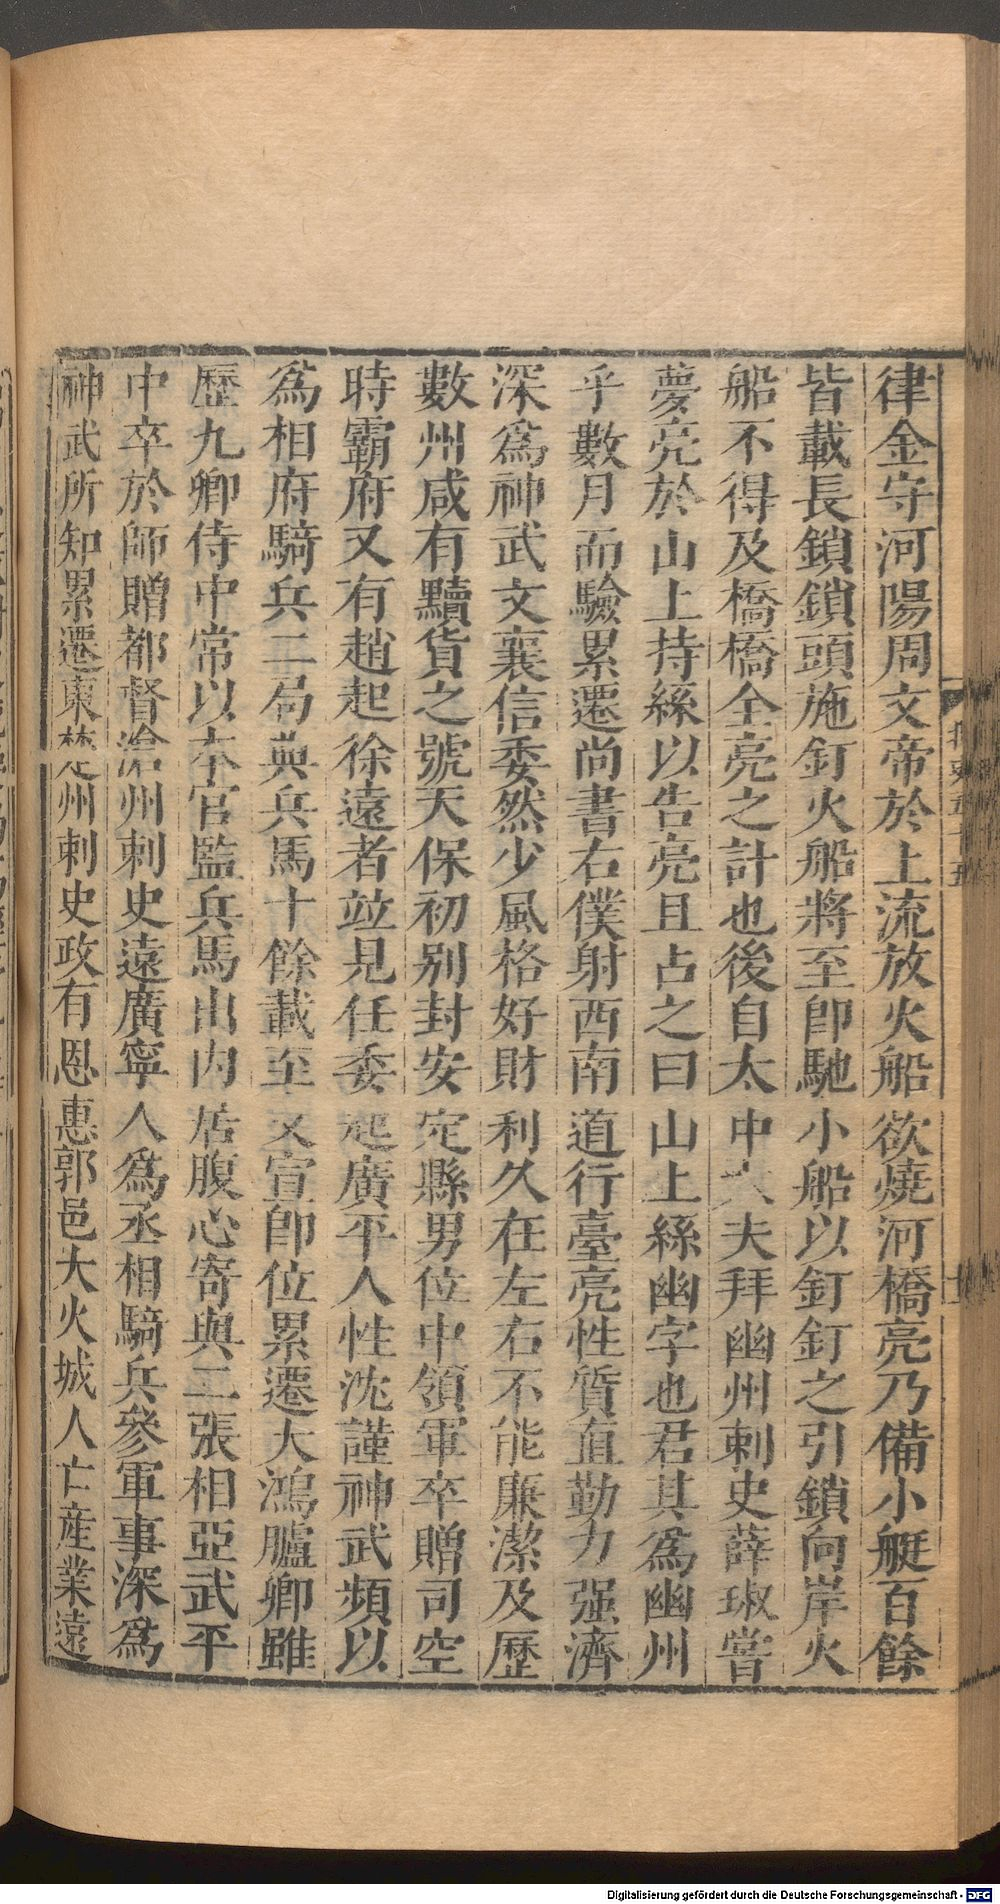 律金守河陽周文帝於上流放火船欲燒河橋亮乃備小艇百餘
皆載長鎖鎖頭施釘火船將至即馳小船以釘釘之引鎖向岸火
船不得及橋橋全亮之計也後自太中大夫拜幽州刺史薛琡嘗
夢亮於山上持絲以告亮且占之曰山上絲幽字也君其為幽州
乎數月而驗累遷尚書右僕射西南道行臺亮性質直勤力强濟
深為神武文襄信委然少風格好財利久在左右不能廉潔及歷
數州咸有黷貨之號天保初别封安定縣男位中領軍卒贈司空
時霸府又有趙起徐遠者竝見任委起廣平人性沈謹神武頻以
為相府騎兵二局典兵馬十餘載至文宣即位累遷大鴻臚卿雖
歷九卿侍中常以本官監兵馬出内居腹心寄與二張相亞武平
中卒於師贈都督滄州刺史遠廣寧人為丞相騎兵參軍事深為
神武所知累遷東楚州刺史政有恩惠郭邑大火城人亡産業遠
Digitalisierung gefördert durch die Deutsche Forschungsgemeinschaft - DFG